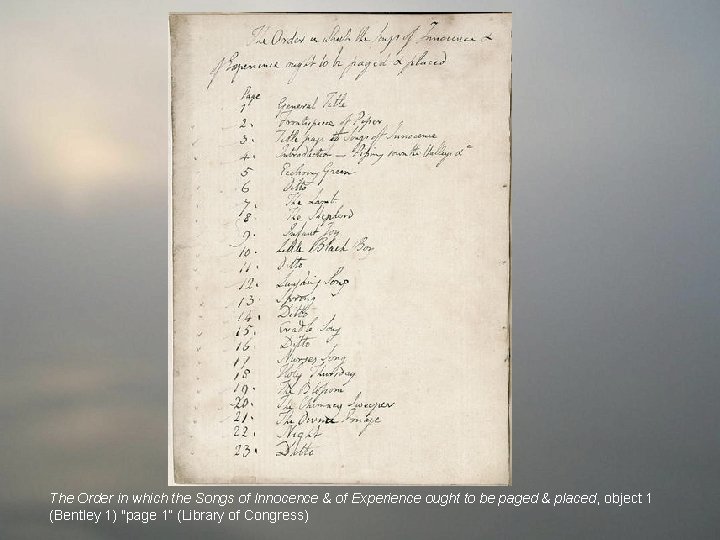 The Order in which the Songs of Innocence &
of Experience ought to be paged & placed
Page
1 General Title
2. Frontispiece of Piper
3. Title page to Songs of Innocence
4. Introduction — Piping down the Valleys &c
5 Ecchoing Green
6 Ditto
7. The Lamb
8. The Shepherd
9. Infant Joy
10. Little Black Boy
11. Ditto
12. Laughing Song
13. Spring
14. Ditto
15. Cradle Song
16 Ditto
17 Nurses Song
18 Holy Thursday
19. The Blossom
20. The Chimney Sweeper
21. The Divine Image
22. Night
23. Ditto
The Order in which the Songs of Innocence & of Experience ought to be paged & placed, object 1
(Bentley 1) "page 1" (Library of Congress)